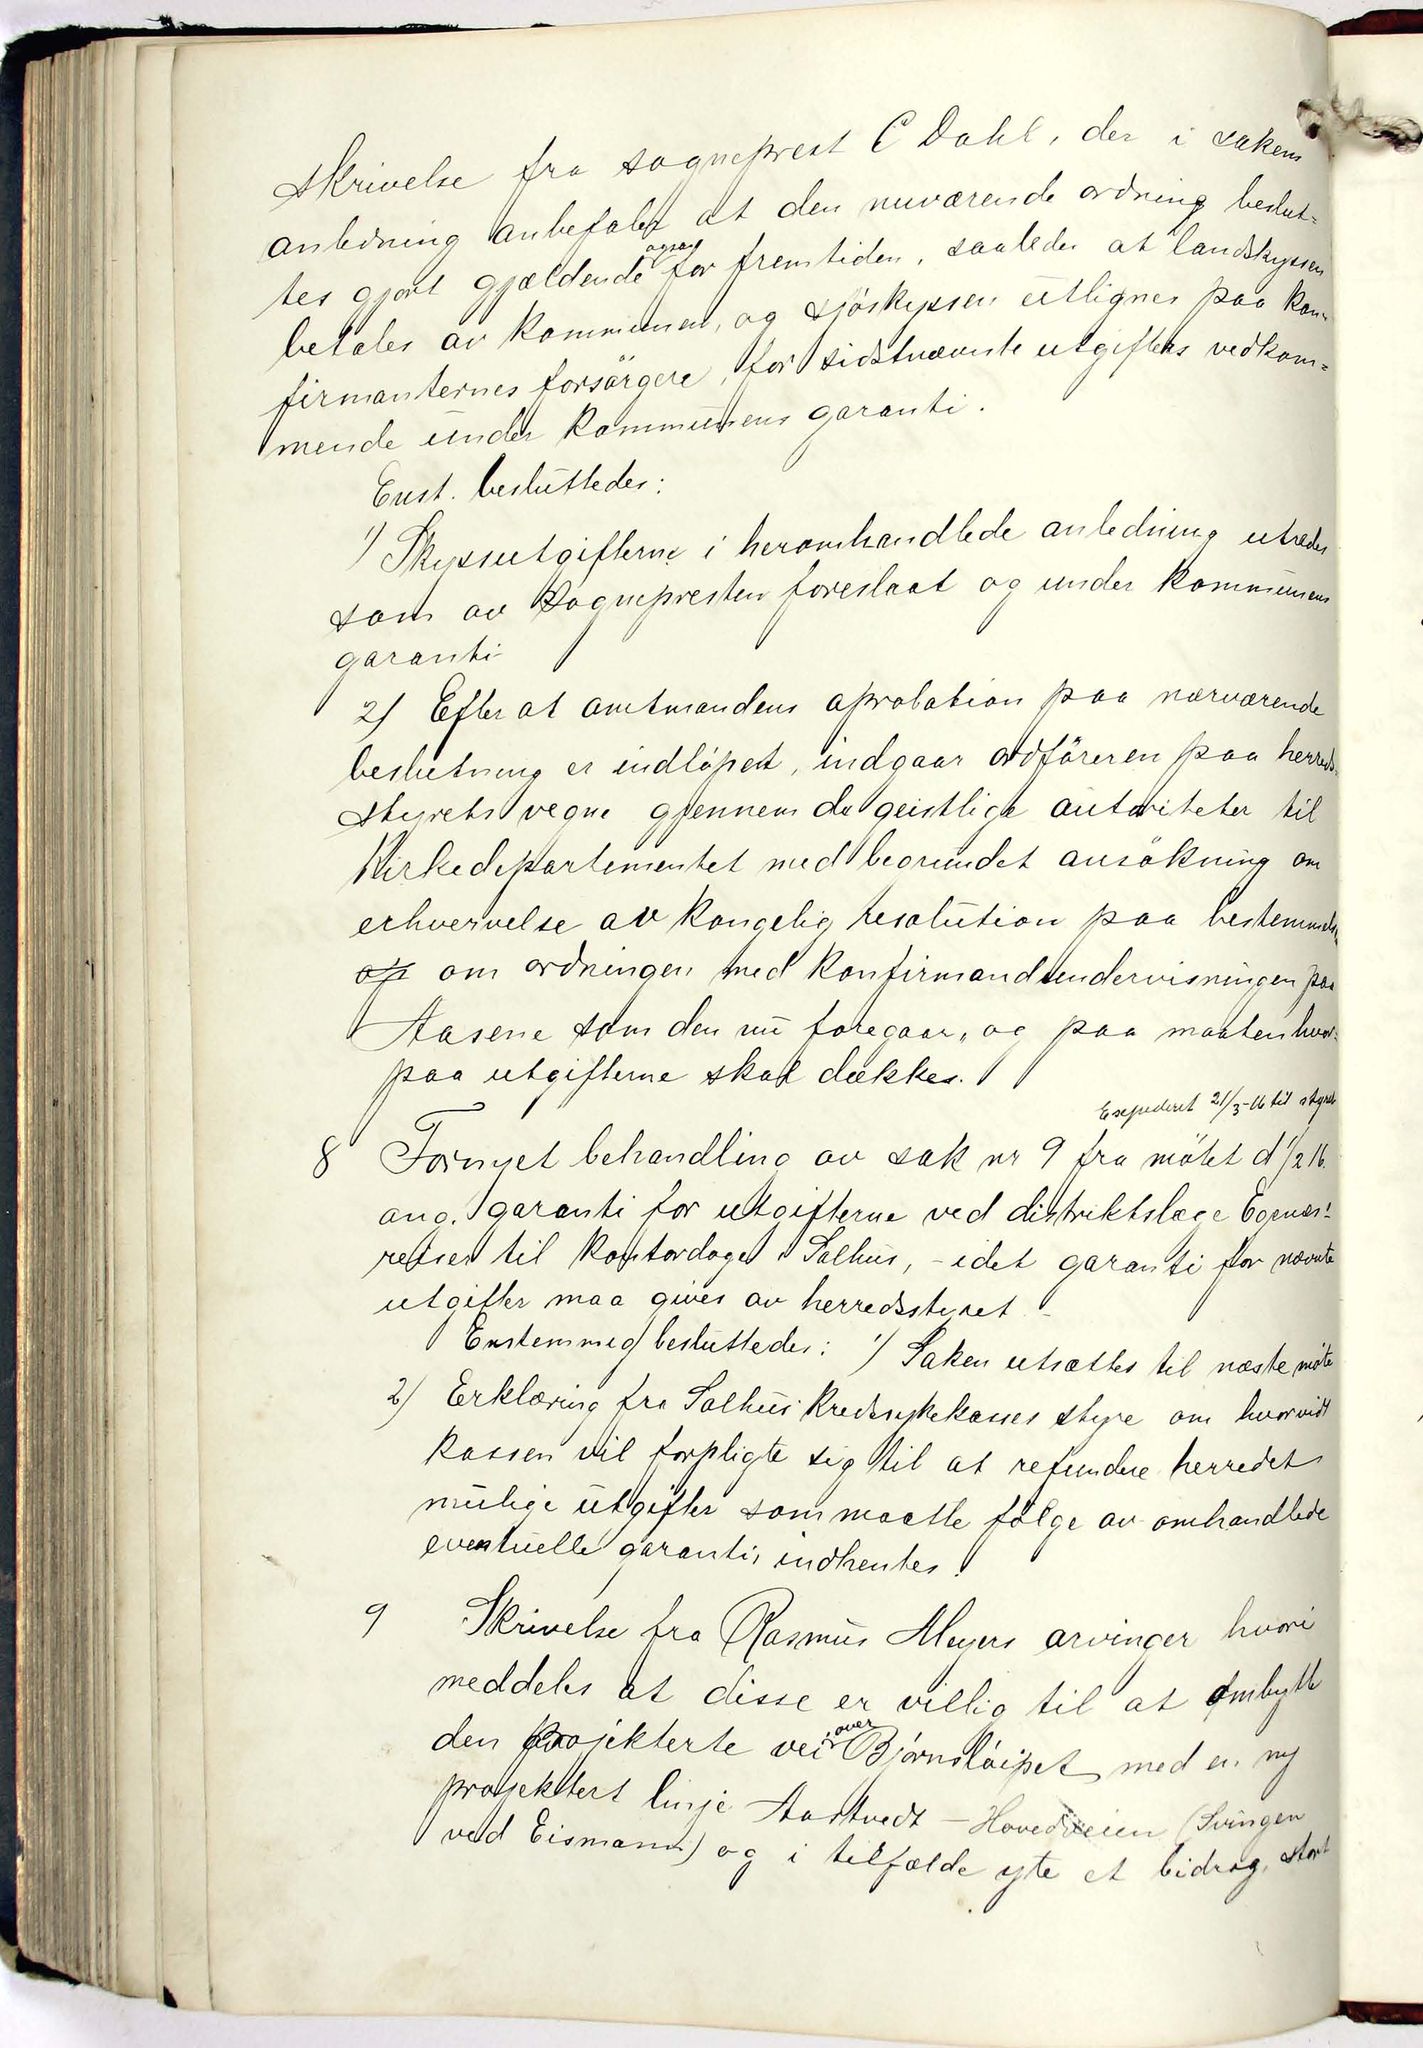 skrivelse fra sogneprest C Dahl, der i sakens
anledning anbefaler at den nuværende ordning beslut=
tes gjort gjældende ogsaa for fremtiden, saaledes at landskyssen
betales av kommunen, og sjøskyssen utlignes paa kon=
firmanternes forsørgere, for sidstnævnte utgifters vedkom=
mende under kommunens garanti.
Enst. besluttedes:
1) Skyssutgifterne i heromhandlede anledning utredes
som av sognepresten foreslaat og under kommunens
garanti
2) Efter at amtmandens aprobation paa nærværende
beslutning er indløpet, indgaar ordføreren paa herreds=
styrets vegne gjennem de geistlige autoriteter til
Kirkedepartementet med begrundet ansøkning om
erhvervelse av kongelig resolution paa bestemmelsen
op om ordningen med konfirmandundervisningen paa
Aasene som den nu foregaar, og paa maaten hvor=
paa utgifterne skal dækkes.
Expederet 21/3-16 til styret
8 Fornyet behandling av sak nr 9 fra møtet d 1/2 16.
ang. garanti for utgifterne ved distriktslæge Egenæs'
reiser til kontordage i Salhus, - idet garanti for nævnte
utgifter maa gives av herredsstyret -
Enstemmig besluttedes: 1) Saken utsættes til næste møte
2) Erklæring fra Salhus Kredssykekasses styre om hvorvidt
kassen vil forpligte sig til at refundere herredet
mulige utgifter som maatte følge av omhandlede
eventuelle garanti, indhentes.
9 Skrivelse fra Rasmus Meyers arvinger hvori
meddeles at disse er villig til at ombytte
den projekterte vei over Bjørnsløipet med en ny
projektert linje Aastvedt - Hovedveien (Svingen
ved Eismann) og i tilfælde yte et bidrag, stort